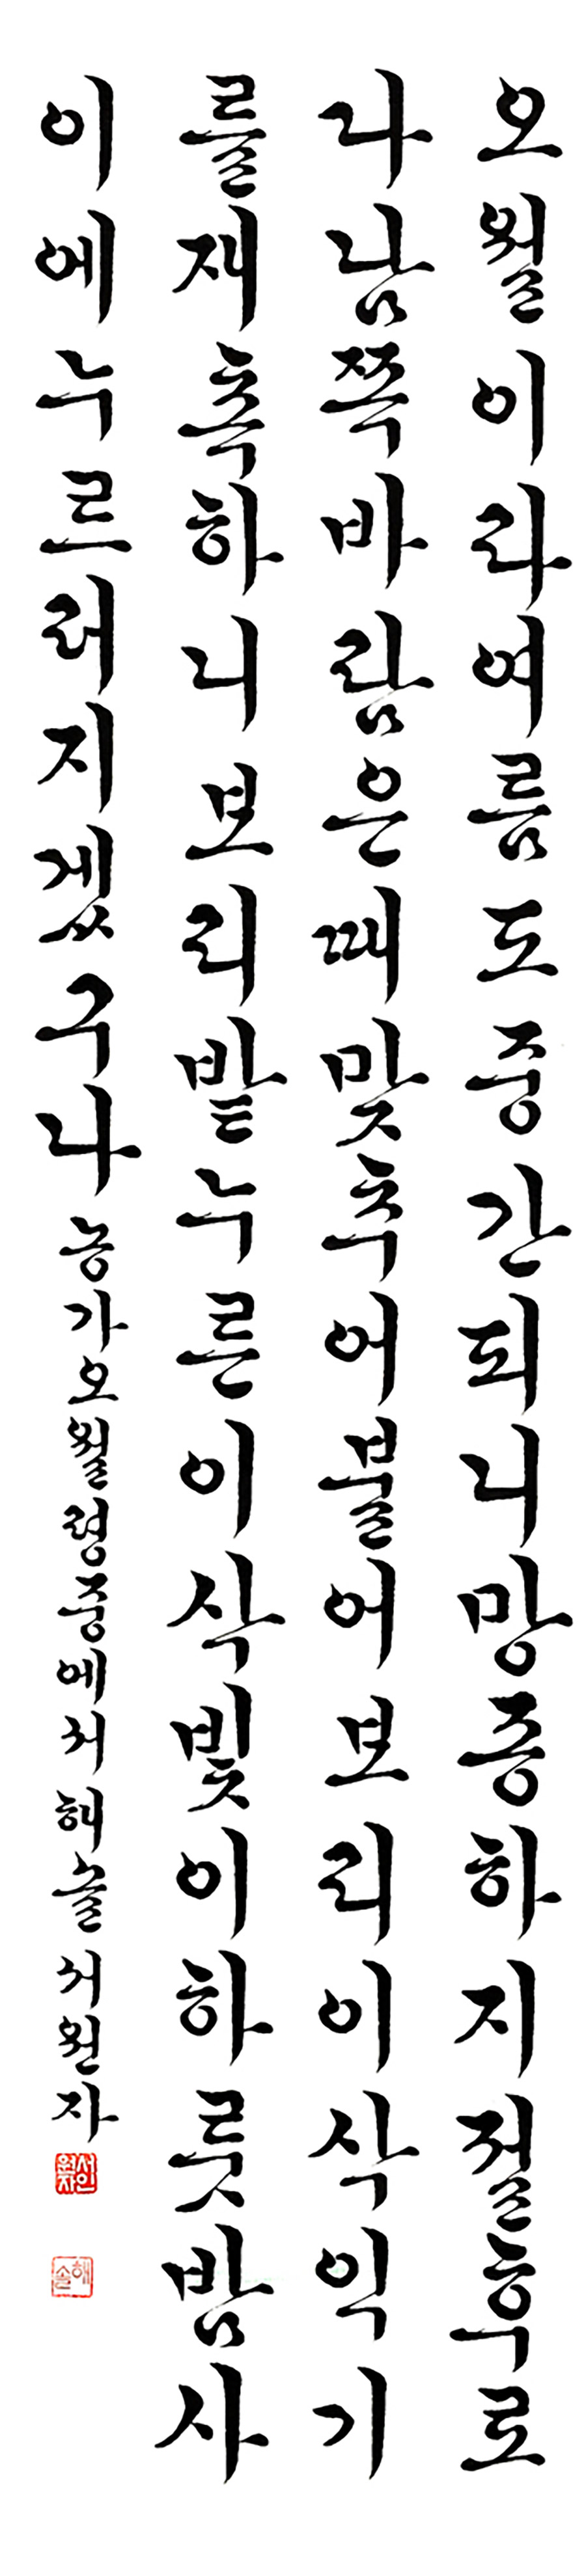 오월이라여름도중간되니망종하지절후로
나남쪽바람은때맞추어불어보리이삭익기
를재촉하니보리밭누른이삭빛이하룻밤사
이에누르러지겠구나 농가오월령중에서 해솔 서원자
서원자인
해솔